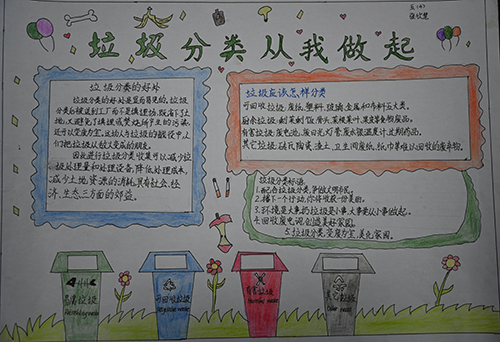 五(4)
垃圾分类从我做起
垃圾分类的好处
垃圾分类的好处是显而易见的。垃圾
分类后被送到工厂而不是填埋场,既省下土
地,又避免了填埋或焚烧所产生的污染,
还可以变废为宝。这场人与垃圾的战役中,人
们把垃圾从敌人变成了朋友。
因此进行垃圾分类收集可以减少垃
圾处理量和处理设备,降低处理成本,
减少土地资源的消耗,具有社会、经
济、生态三方面的效益。
垃圾应该怎样分类
可回收垃圾:废纸,塑料,玻璃,金属和布料五大类。
厨余垃圾:剩菜剩饭,骨头,菜根菜叶,果皮等食物废品。
有害垃圾:废电池,废日光灯管,废水银温度计,过期药品。
其它垃圾:砖瓦陶瓷,渣土,卫生间废纸,纸巾等难以回收的废弃物。
垃圾分类标语
1.配合垃圾分类,争做文明市民。
2.播下一个行动,你将收获一份美丽。
3.环境是大事的垃圾是小事,大事更从小事做起。
4.回收废电调,创造美好家园。
5.垃圾分类,变废为宝,美化家园。
厨房垃圾
可回收垃圾
Recyclable waste
有害垃圾
Harmful waste
其它垃圾
Other waste